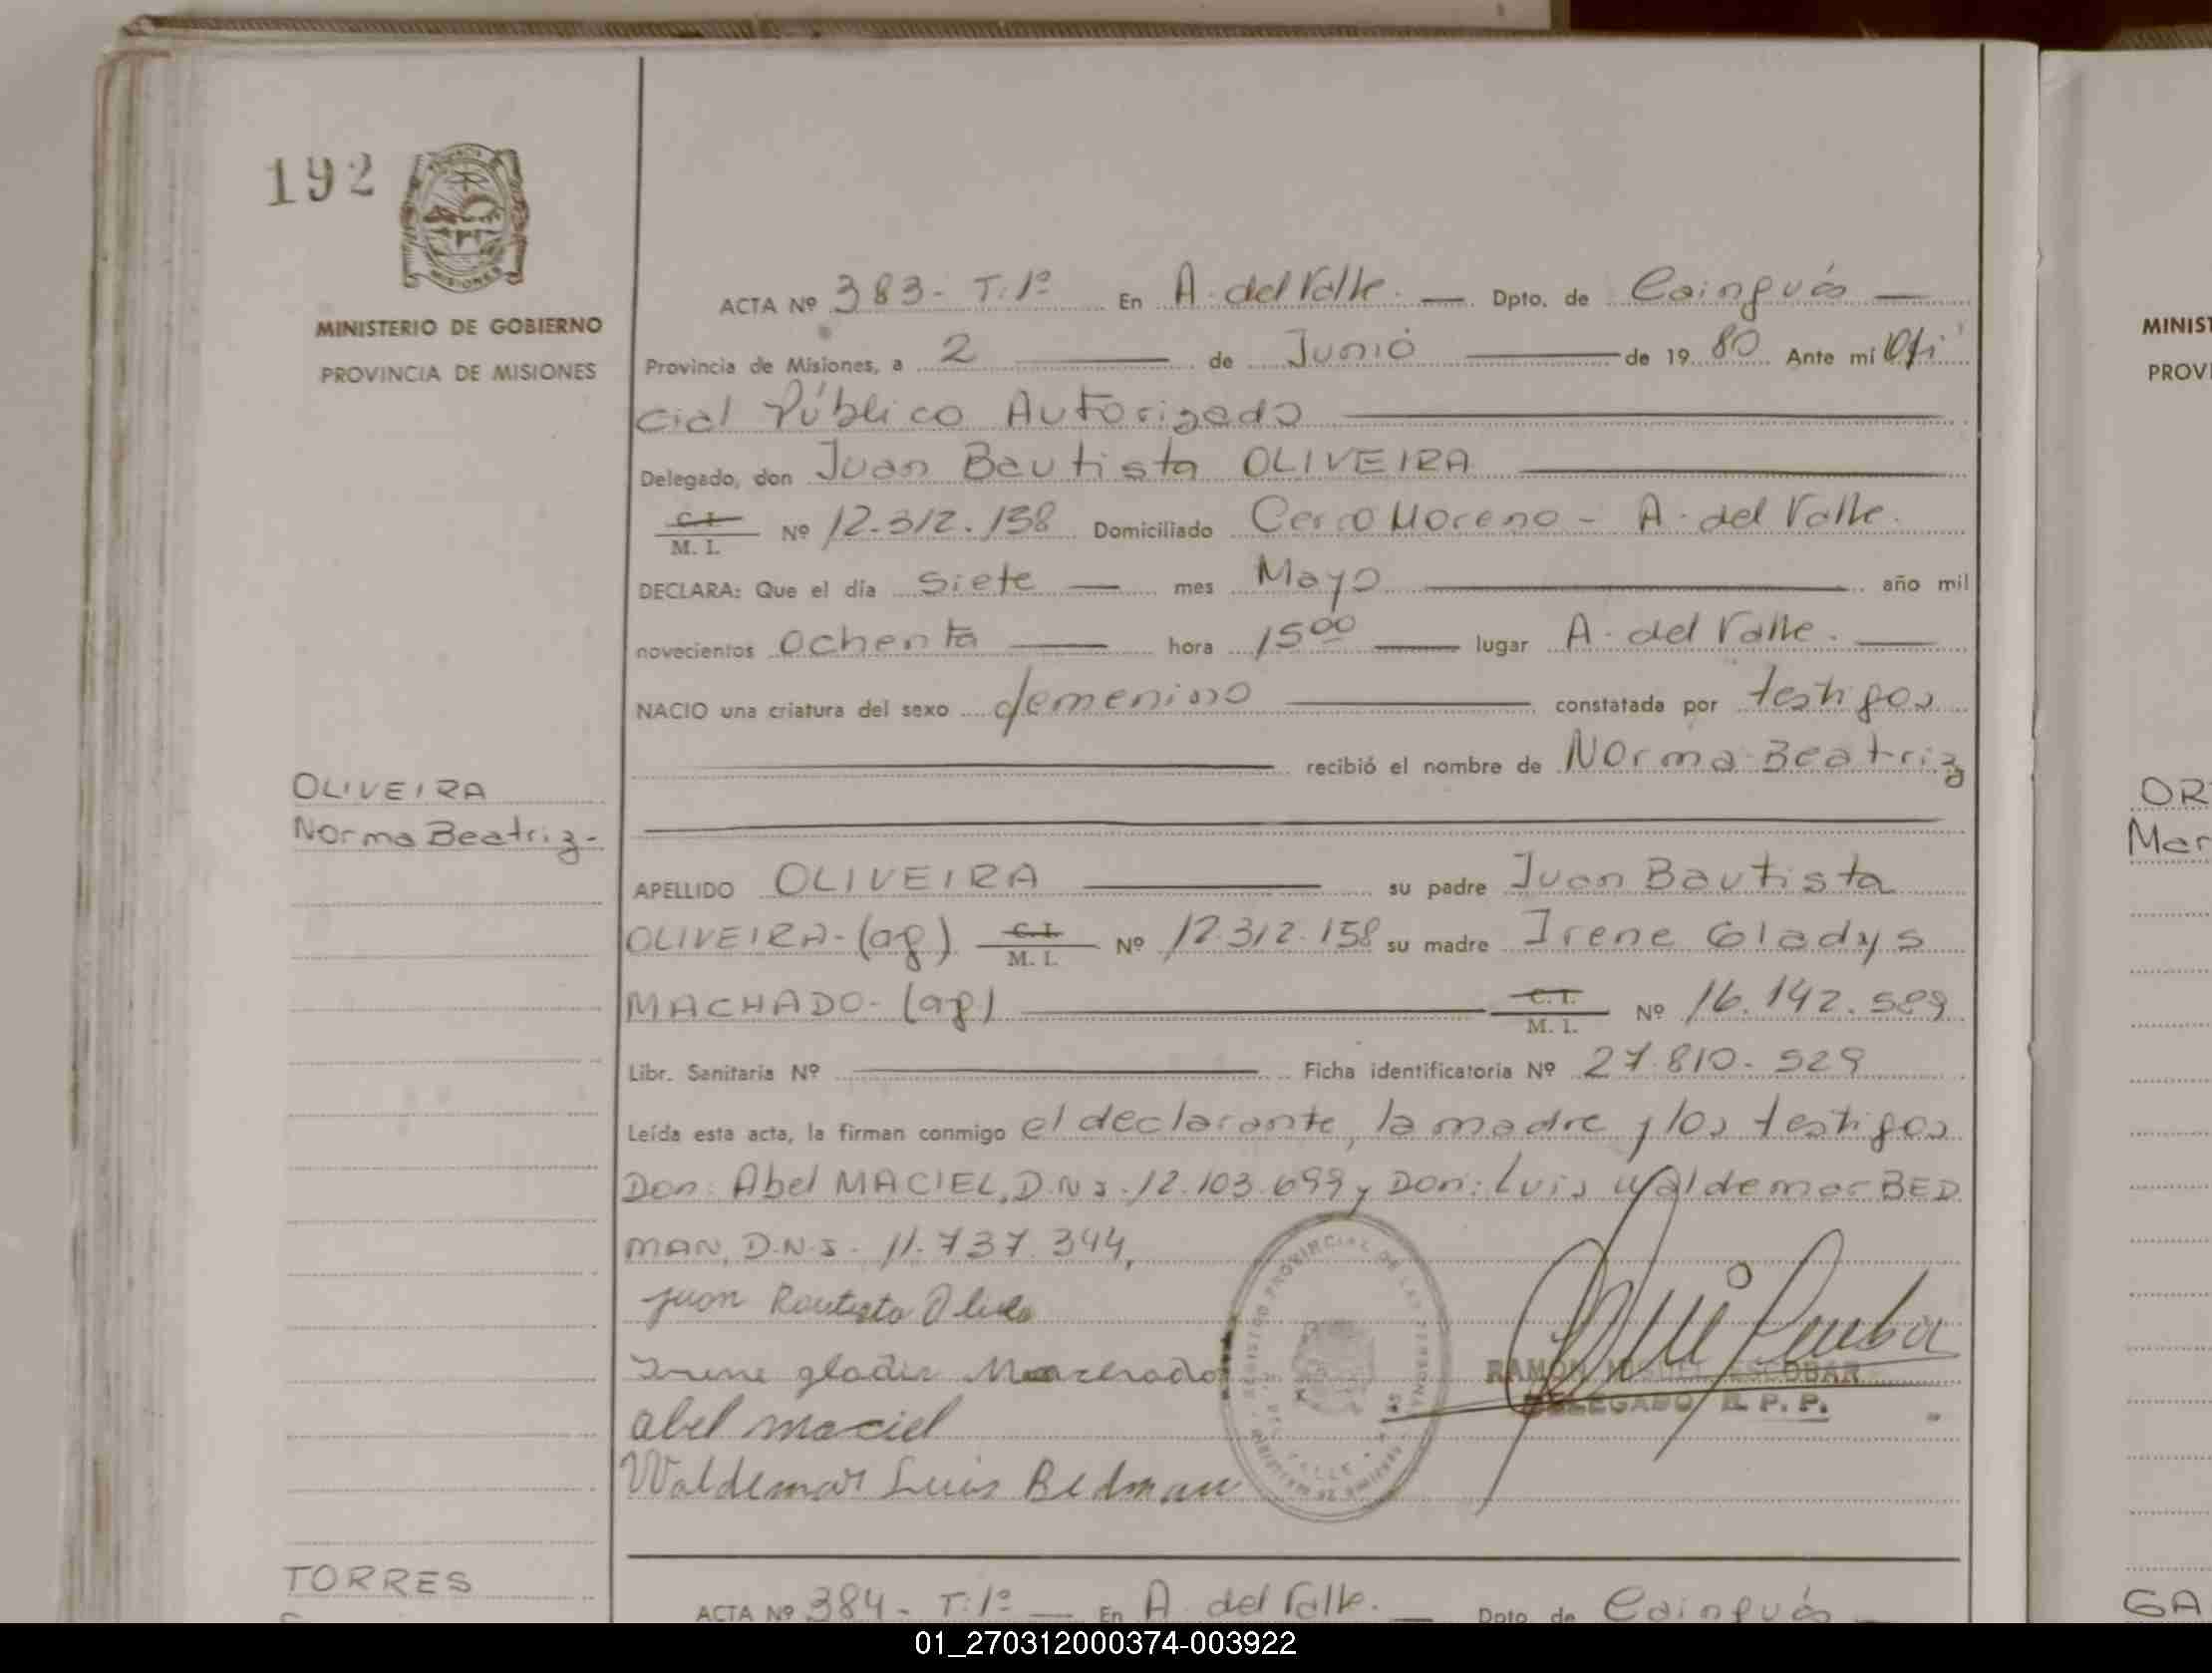 192
MINISTERIO DE GOBIERNO
PROVINCIA DE MISIONES
ACTA Nº 383- T:1º En A. del Valle. Dpto. de Cainguás
Provincia de Misiones, a 2 de Junio de 1980 Ante mi Ofi
cial Público Autorizado
Delegado, don Juan Bautista OLIVEIRA
C. I.
M. I. Nº 12.312.158 Domiciliado Cerro Moreno - A. del Valle.
DECLARA: Que el día siete mes Mayo año mil
novecientos ochenta hora 1500 lugar A. del Valle.
NACIO una criatura del sexo femenino constatada por testigos
recibió el nombre de Norma Beatriz
OLIVEIRA
Norma Beatriz-
APELLIDO OLIVEIRA su padre Juan Bautista
OLIVEIRA-(ag) C. I.
M. I. Nº 12.312.158 su madre Irene Gladys
MACHADO-(ag) C. I.
M. I. Nº 16.142.589
Libr. Sanitaria Nº Ficha identificatoria Nº 27.810.529
Leída esta acta, la firman conmigo el declarante, la madre y los testigos
Don: Abel MACIEL, D.N.I. 12.103.699 y Don: Luis Waldemar BED
MAN, D.N.I. 11.737.344,
Juan Bautista
Irene glades Machado
abel maciel
Waldemar Luis Bedman
REGISTRO PROVINCIAL DE LAS PERSONAS
VALLE
RAMON MIGUEL ESCOBAR
DELEGADO R. P. P.
TORRES
ACTA Nº 384- T:1º En A. del Valle. Dpto. de Cainguás
MINIST
PROVI
OR
Mar
GA
01_270312000374-003922